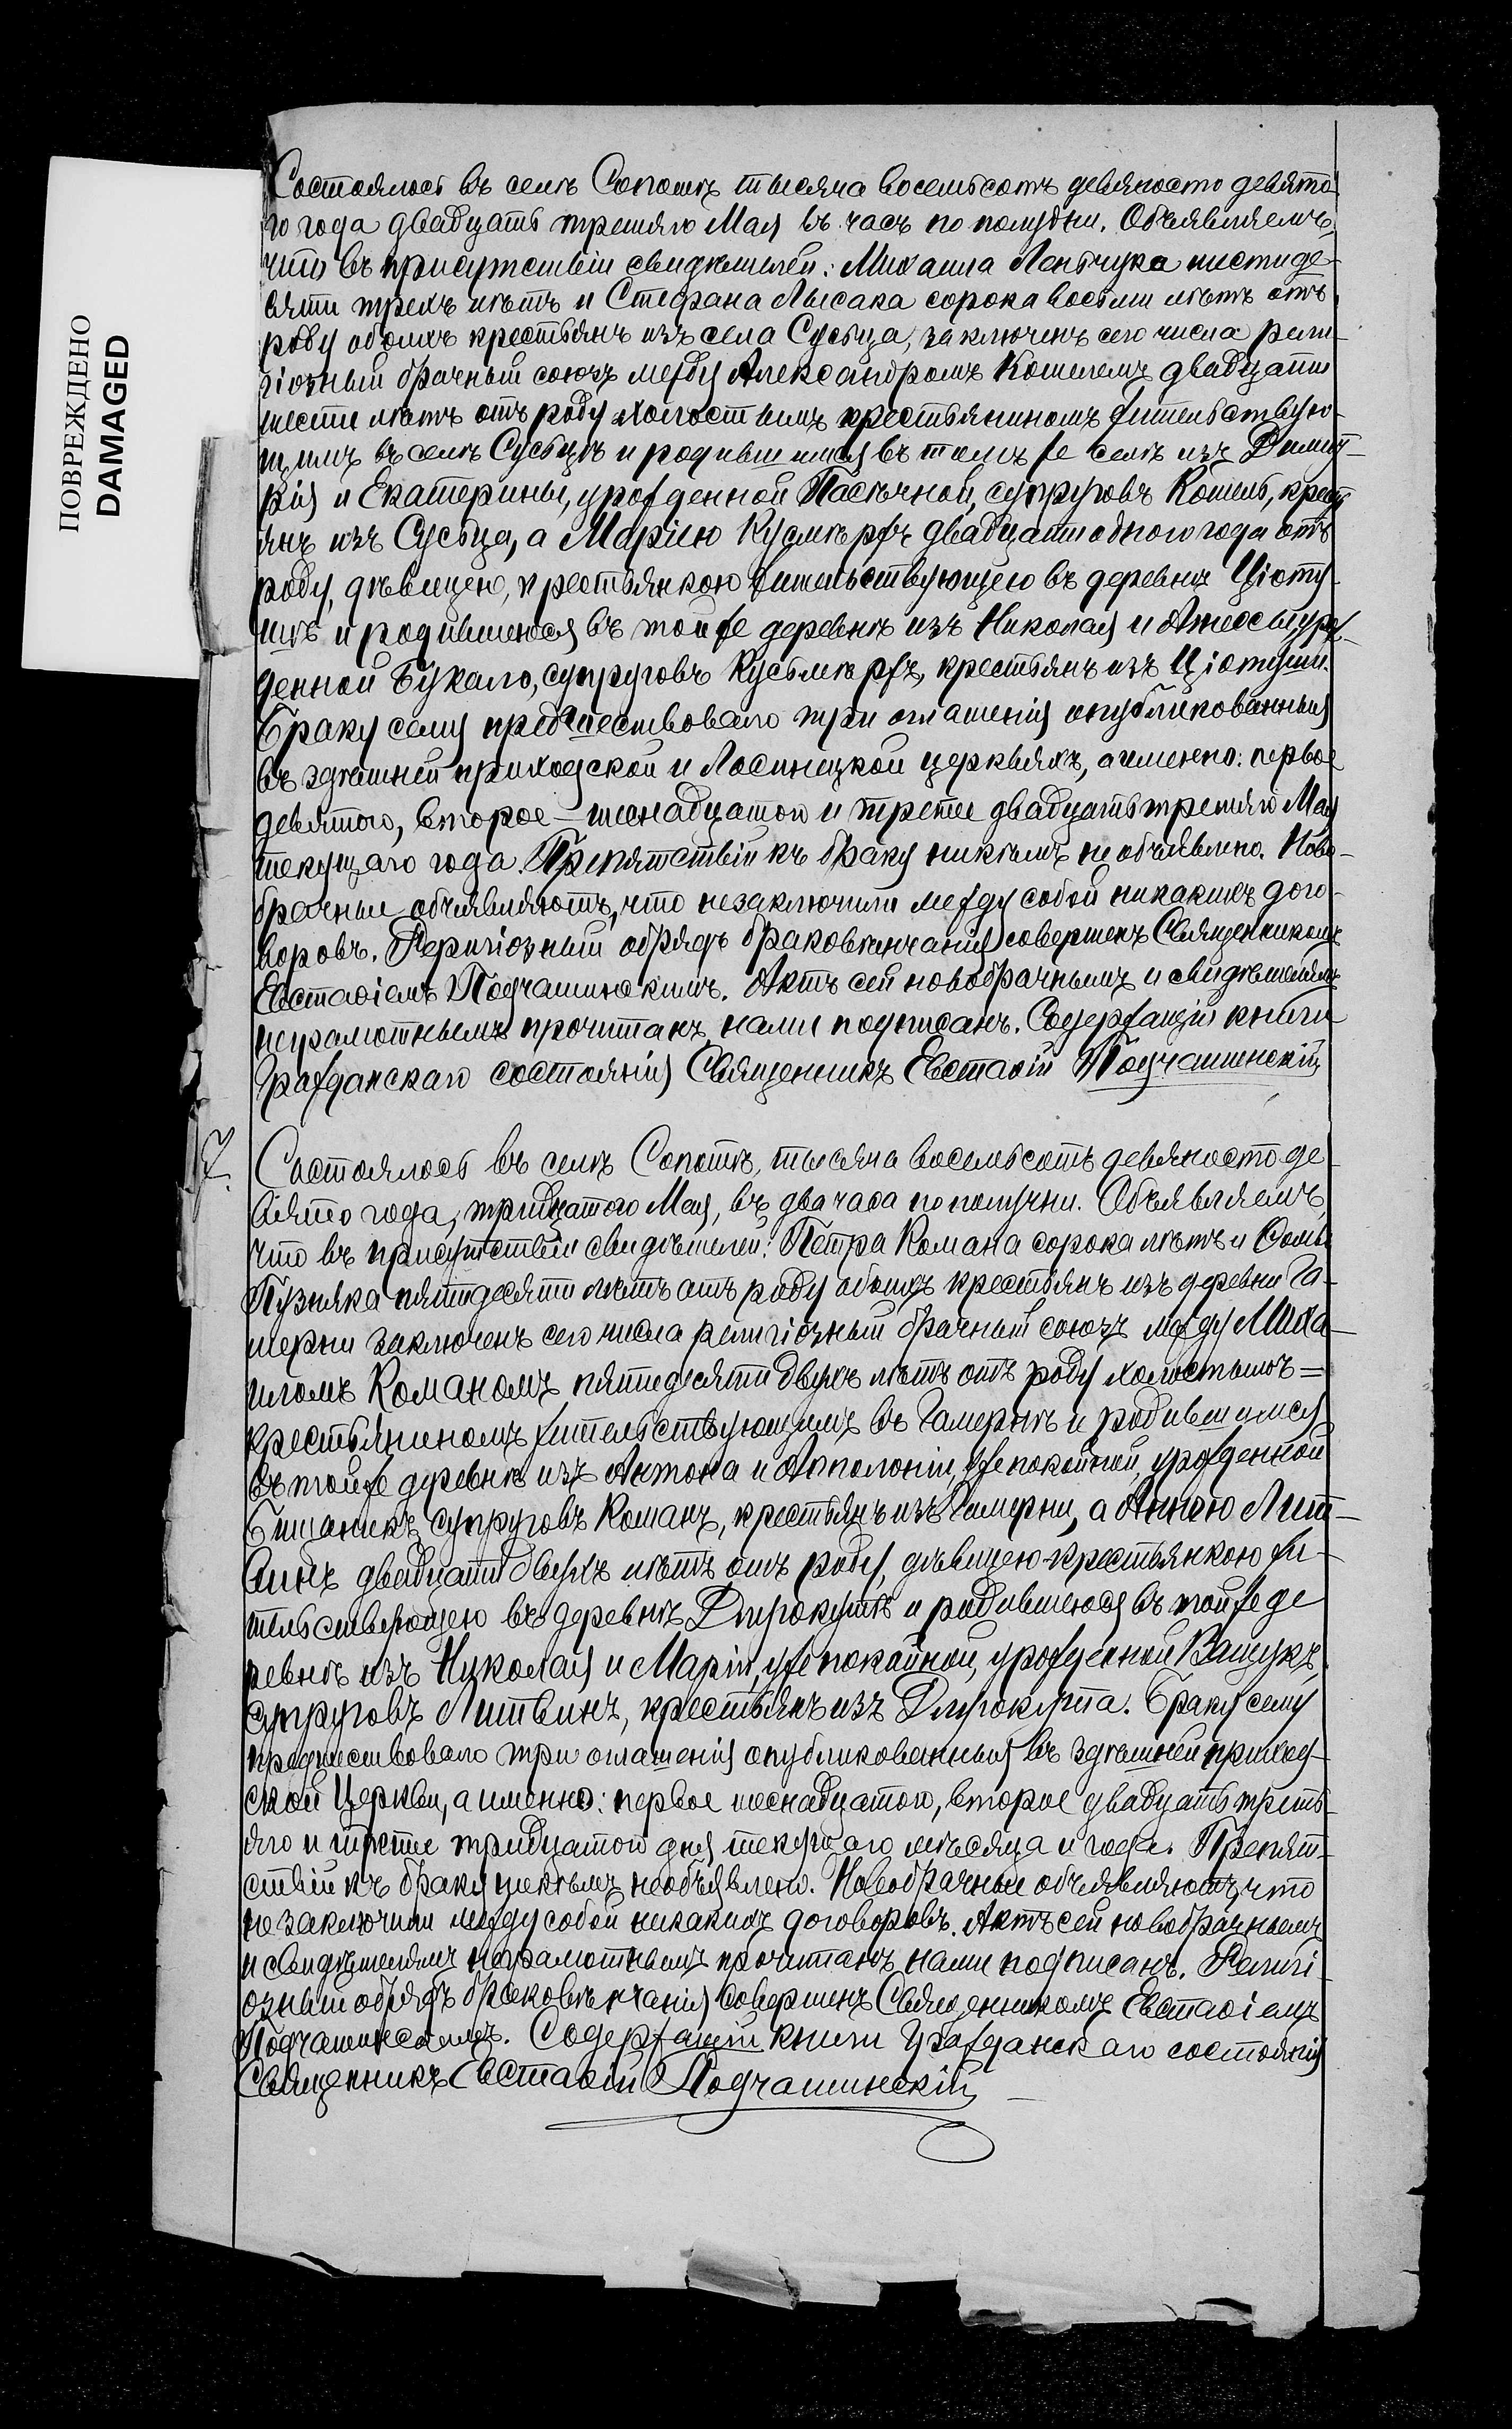 ПОВРЕЖДЕНО
DAMAGED
Состоялось въ селѣ Сопотѣ тысяча восемьсотъ девяносто девято-
го года двадцать третяго Мая въ часъ по полудни. Объявляемъ,
что въ присутствіи свидѣтелей: Михаила шестиде-
сяти трехъ лѣтъ и Стефана Лысака сорока восьми лѣтъ отъ
роду обоихъ крестьянъ изъ села Сусьца, заключенъ сего числа рели-
гіозный брачный союзъ между Александромъ Кошелемъ двадцати
шести лѣтъ отъ роду холостымъ крестьяниномъ жительствую-
щимъ въ селѣ Сусьцѣ и родившимся въ томъ же селѣ изъ Димит-
рія и Екатерины, урожденной Пасѣчной, супруговъ Кошель, крест
янъ изъ Сусьца, а Маріею Кусмѣржъ двадцати одного года отъ
роду, дѣвицею, крестьянкою жительствующею въ деревнѣ Цioту-
шѣ и родившеюся въ той же деревнѣ изъ Николая и урож-
денной Букало, супруговъ Кусьмѣржъ, крестьянъ изъ Цiотуши.
Браку сему предшествовало три оглашенія опубликованныя
въ здѣшней приходской и Лосинецкой церквяхъ, а именно: первое
девятого, второе – шеснадцатого и третіе двадцать третяго Мая
текущаго года. Препятствій къ браку никѣмъ не объявлено. Ново-
брачные объявляютъ, что незаключили между собой никакихъ дого-
воровъ. Религіозный обрядъ браковѣнчанія совершенъ Священникомъ
Евстаѳіемъ Подчашинскимъ. Актъ сей новобрачнымъ и свидѣтелямъ
неграмотнымъ прочитанъ, нами подписанъ. Содержащій книги
Гражданскаго состоянія Священникъ Евстаѳій Подчашинскій
7. Состоялось въ селѣ Сопотѣ, тысяча восемьсотъ девяносто де-
вятого года, тридцатого Мая, въ два часа по полудни. Объявляемъ,
что въ присутствіи свидѣтелей: Петра Комана сорока лѣтъ и Ѳомы
Пузняка пятидесяти лѣтъ отъ роду обоихъ крестьянъ изъ деревни Га-
мерни заключенъ сего числа религіозный брачный союзъ между Миха-
иломъ Команомъ пятидесяти двухъ лѣтъ отъ роду холостымъ =
крестьяниномъ жительствующимъ въ Гамернѣ и родившимся
въ той же деревнѣ изъ Антона и Апполоніи, уже покойной, урожденной
супруговъ Команъ, крестьянъ изъ Гамерни, а Анною Лит-
винъ двадцати двухъ лѣтъ отъ роду, дѣвицею-крестьянкою жи-
тельствующею въ деревнѣ Длугокутѣ и родившеюся въ той же де
ревнѣ изъ Николая и Маріи, уже покойной, урожденной Ващукъ,
супруговъ Литвинъ, крестьянъ изъ Длугокута. Браку сему
предшествовало три оглашенія опубликованныя въ здѣшней приход-
ской Церкви, а именно: первое шеснадцатого, второе двадцать треть-
яго и третіе тридцатого дня текущаго мѣсяца и года. Препят-
ствій къ браку никѣмъ необъявлено. Новобрачные объявляютъ, что
не заключили между собой никакихъ договоровъ. Актъ сей новобрачнымъ
и свидѣтелямъ неграмотнымъ прочитанъ, нами подписанъ. Религі-
озный обрядъ браковѣнчанія совершенъ Священникомъ Евстаѳіемъ
Подчашинскимъ. Содержащій книги Гражданскаго состоянія
Священникъ Евстаѳій Подчашинскій